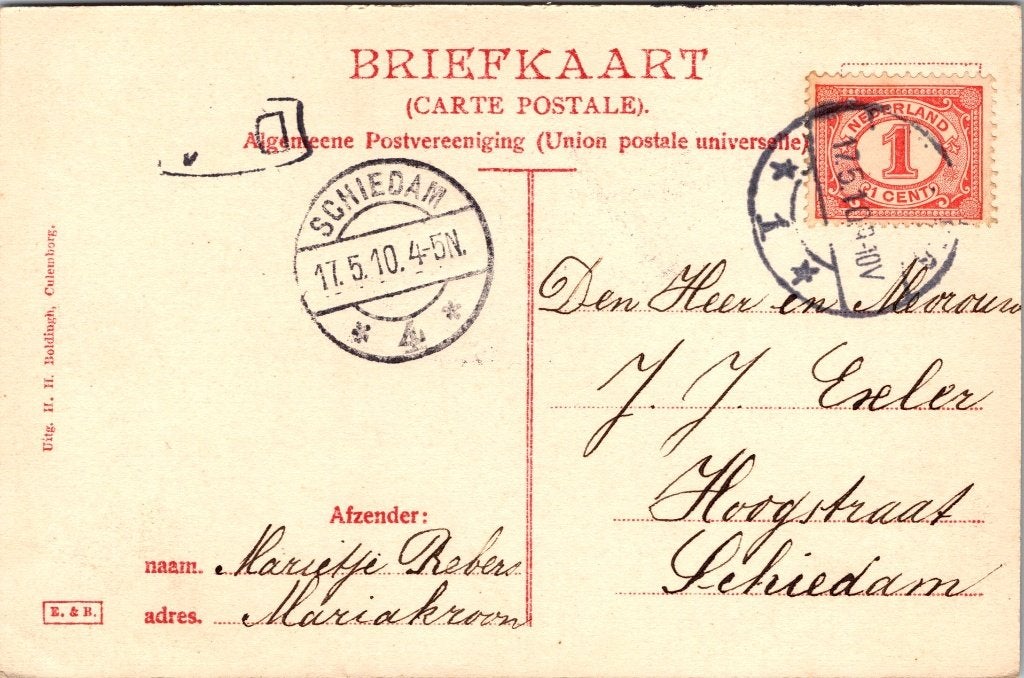 BRIEFKAART
(CARTE POSTALE).
Algemeene Postvereeniging (Union postale universelle)
NEDERLAND
1
(1 CENT)
17.5.10 9-10V
1
SCHIEDAM
17.5.10.4-5N.
4
Uitg. H. H. Boldingh, Culemborg.
Den Heer en Mevrouw
J. J. Exeler
Hoogstraat
Schiedam
Afzender:
naam. Marietje Rebers
adres. Mariakroon
E. & B.